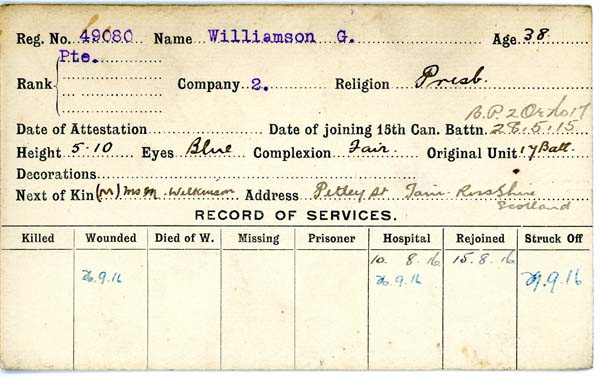 Reg. No. 49080 Name Williamson G. Age 38
Pte.
Rank Company 2. Religion Presb.
B.P. 2 Ord 17
Date of Attestation Date of joining 15th Can. Battn. 28.5.15
Height 5-10 Eyes Blue Complexion Fair. Original Unit 17 Batt.
Decorations
Next of Kin (M) Mrs M. Wilkinson Address Petley St Tain Ross Shire
Scotland
RECORD OF SERVICES.
Killed Wounded Died of W. Missing Prisoner Hospital Rejoined Struck Off
10. 8. 16 15. 8. 16
26.9.16 26.9.16 29.9.16